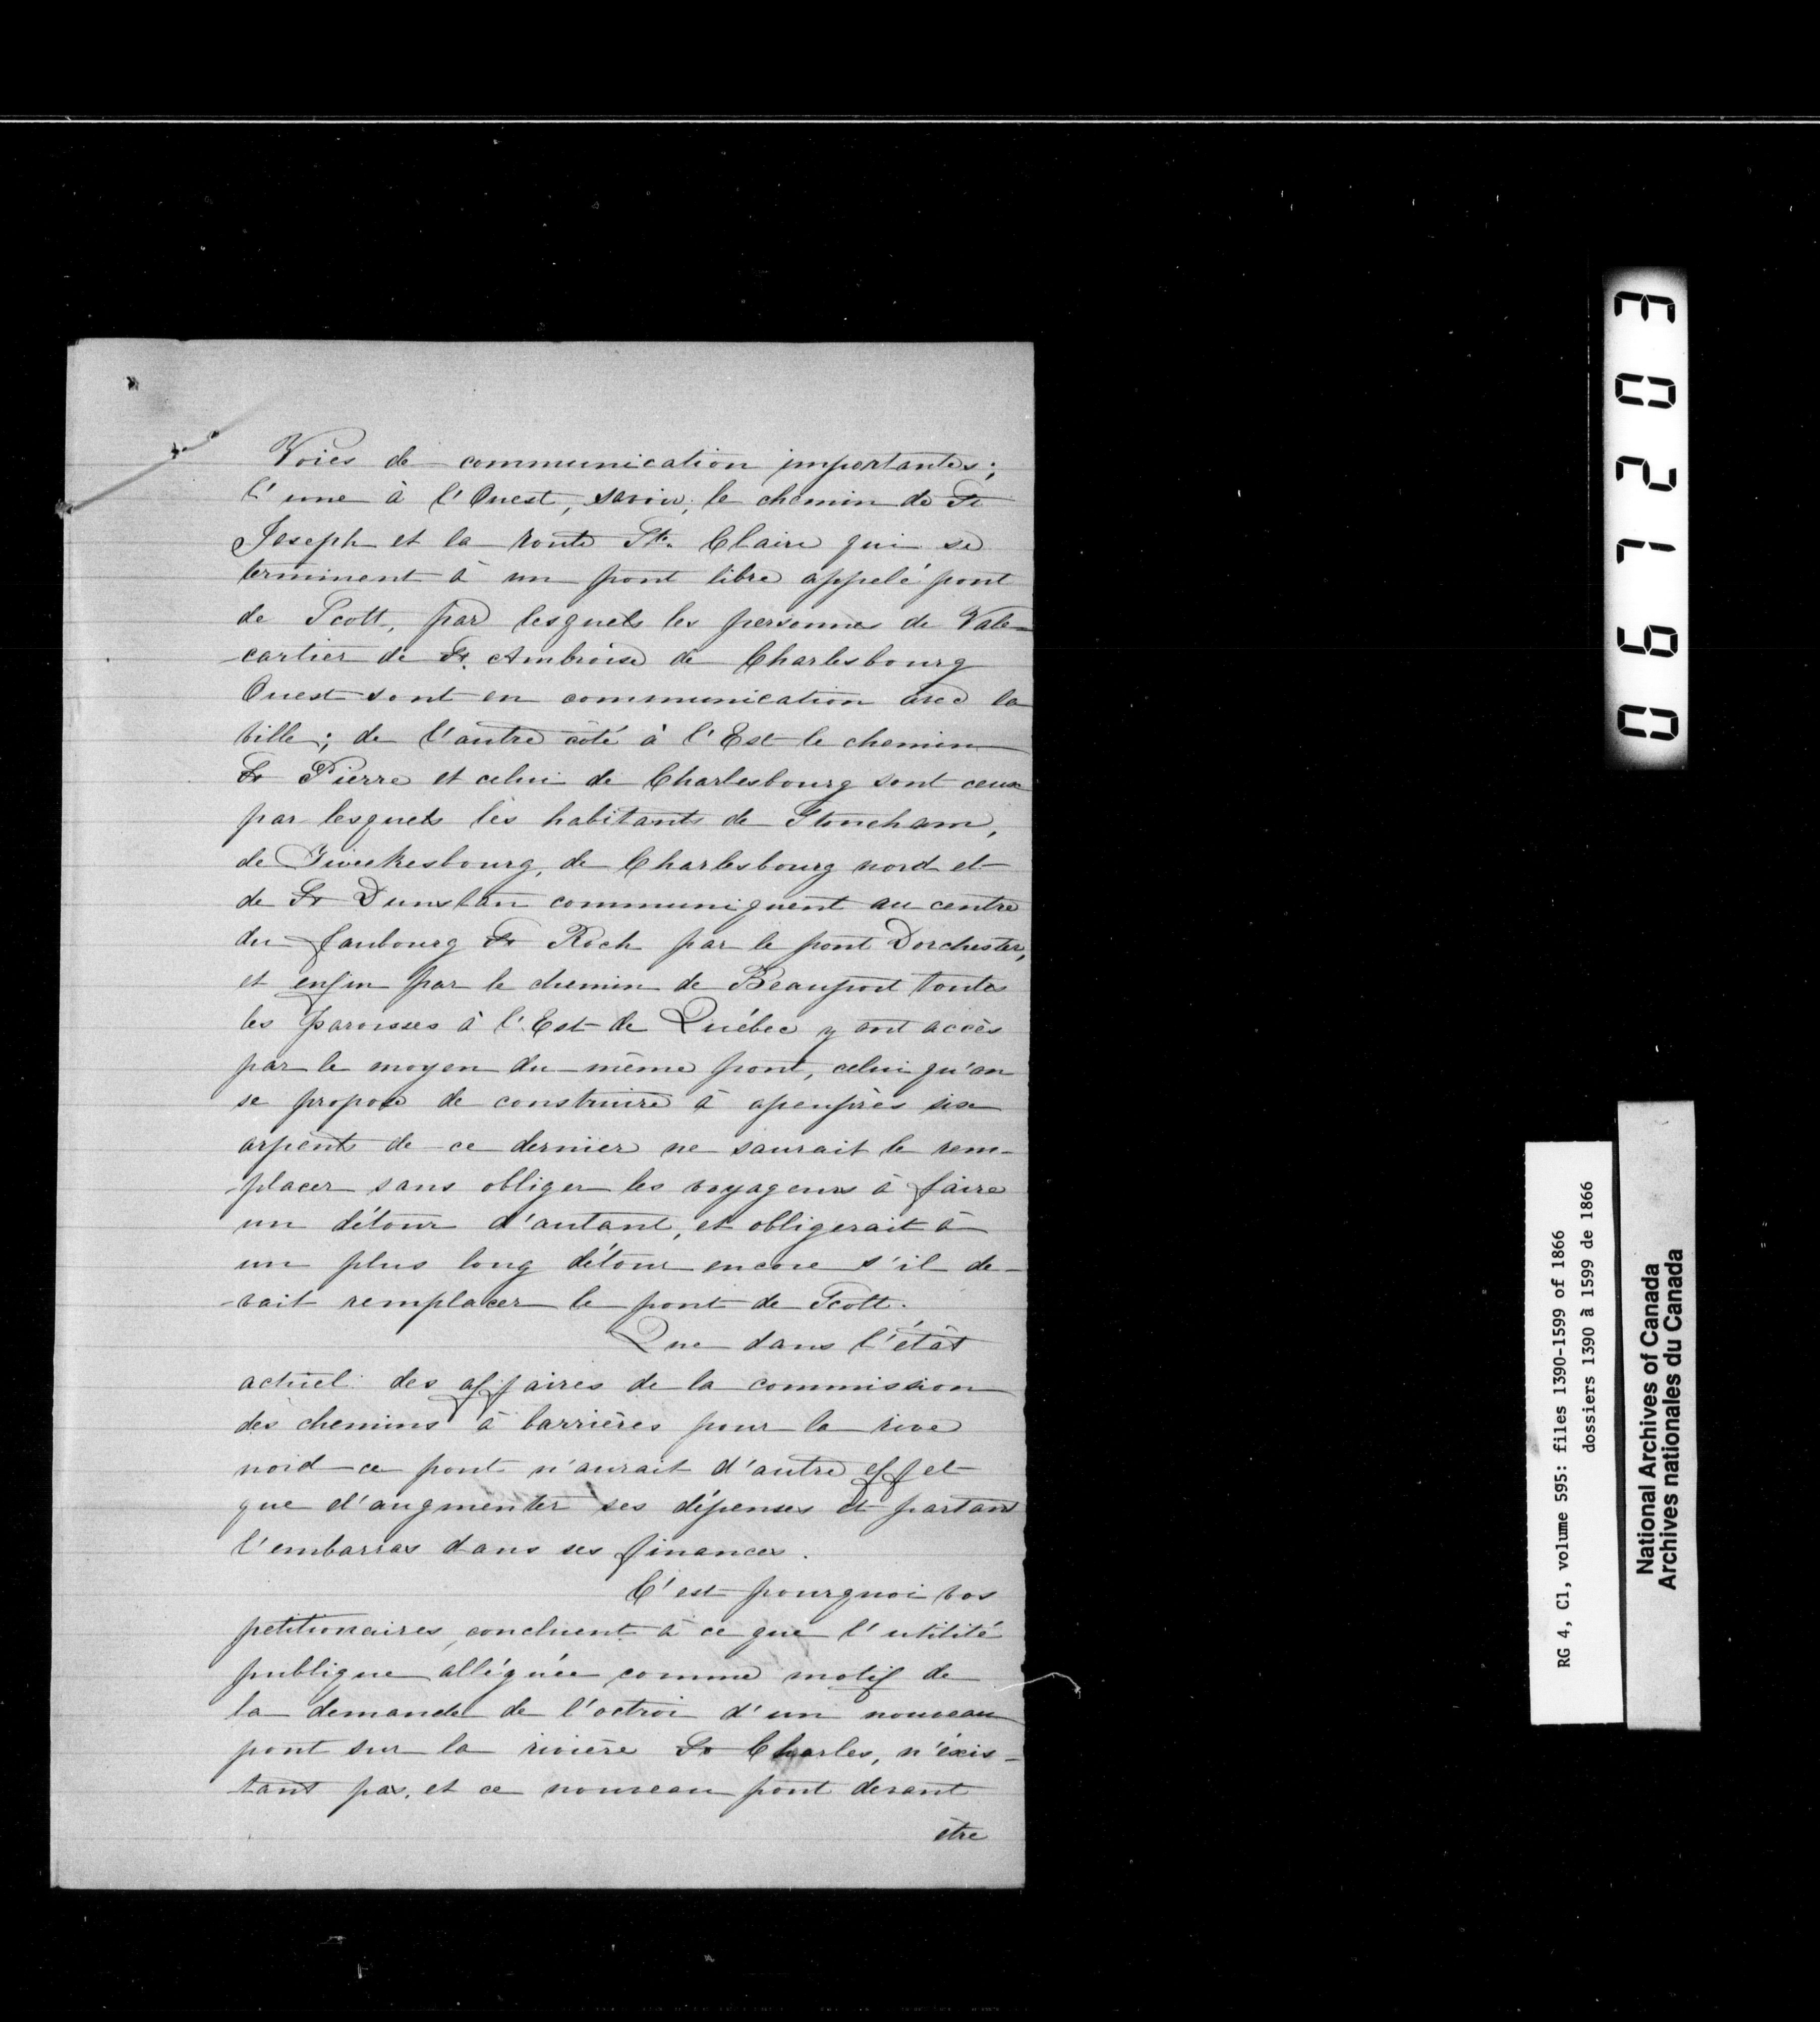 Voies de communication importantes;
l'une à l'Ouest, savoir, le chemin de St
Joseph et la route Ste. Claire qui se
terminent à un pont libre appelé pont
de Scott, par lesquels les personnes de Vale-
-cartier de St. Ambroise de Charlesbourg
Ouest sont en communication avec la
ville; de l'autre côté à l'Est le chemin
St Pierre et celui de Charlesbourg sont ceux
par lesquels les habitants de Stoneham,
de Jiwickesbourg, de Charlesbourg nord et
de St Dunstan communiquent au centre
du faubourg St Roch par le pont Dorchester,
et enfin par le chemin de Beauport toutes
les paroisses à l'Est de Québec y ont accès
par le moyen du même pont, celui qu'on
se propose de construire à apeuprès six
arpents de ce dernier ne saurait le rem-
-placer sans obliger les voyageurs à faire
un détour d'autant, et obligerait à
un plus long détour encore s'il de-
-vait remplacer le pont de Scott.
Que dans l'état
actuel des affaires de la commission
des chemins à barrières pour la rive
nord ce pont n'aurait d'autre effet
que d'augmenter ses dépenses et partant
l'embarras dans ses finances.
C'est pourquoi vos
petitionaires, concluent à ce que l'utilité
publique alléguée comme motif de
la demande de l'octroi d'un nouveau
pont sur la rivière St Charles, n'éxis-
tant pas, et ce nouveau pont devant
être
061203
RG 4, C1, volume 595: files 1390-1599 of 1866
dossiers 1390 à 1599 de 1866
National Archives of Canada
Archives nationales du Canada